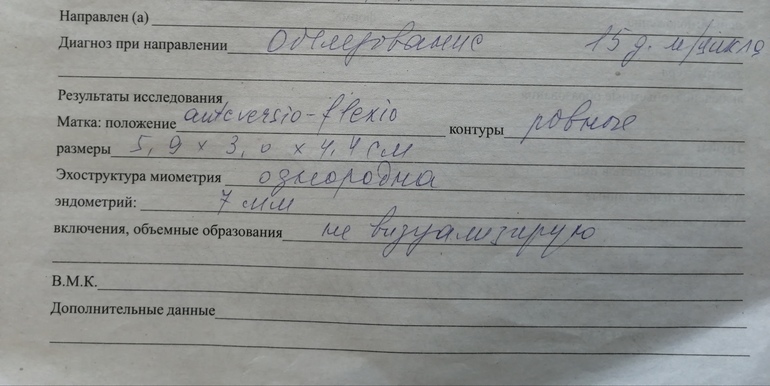 Направлен (а)
Диагноз при направлении Обследование 15 д. м/цикла
Результаты исследования
Матка: положение anteversio-flexio контуры ровные
размеры 5,9 х 3,0 х 4,4 см
Эхоструктура миометрия однородна
эндометрий: 7 мм
включения, объемные образования не визуализирую
В.М.К.
Дополнительные данные